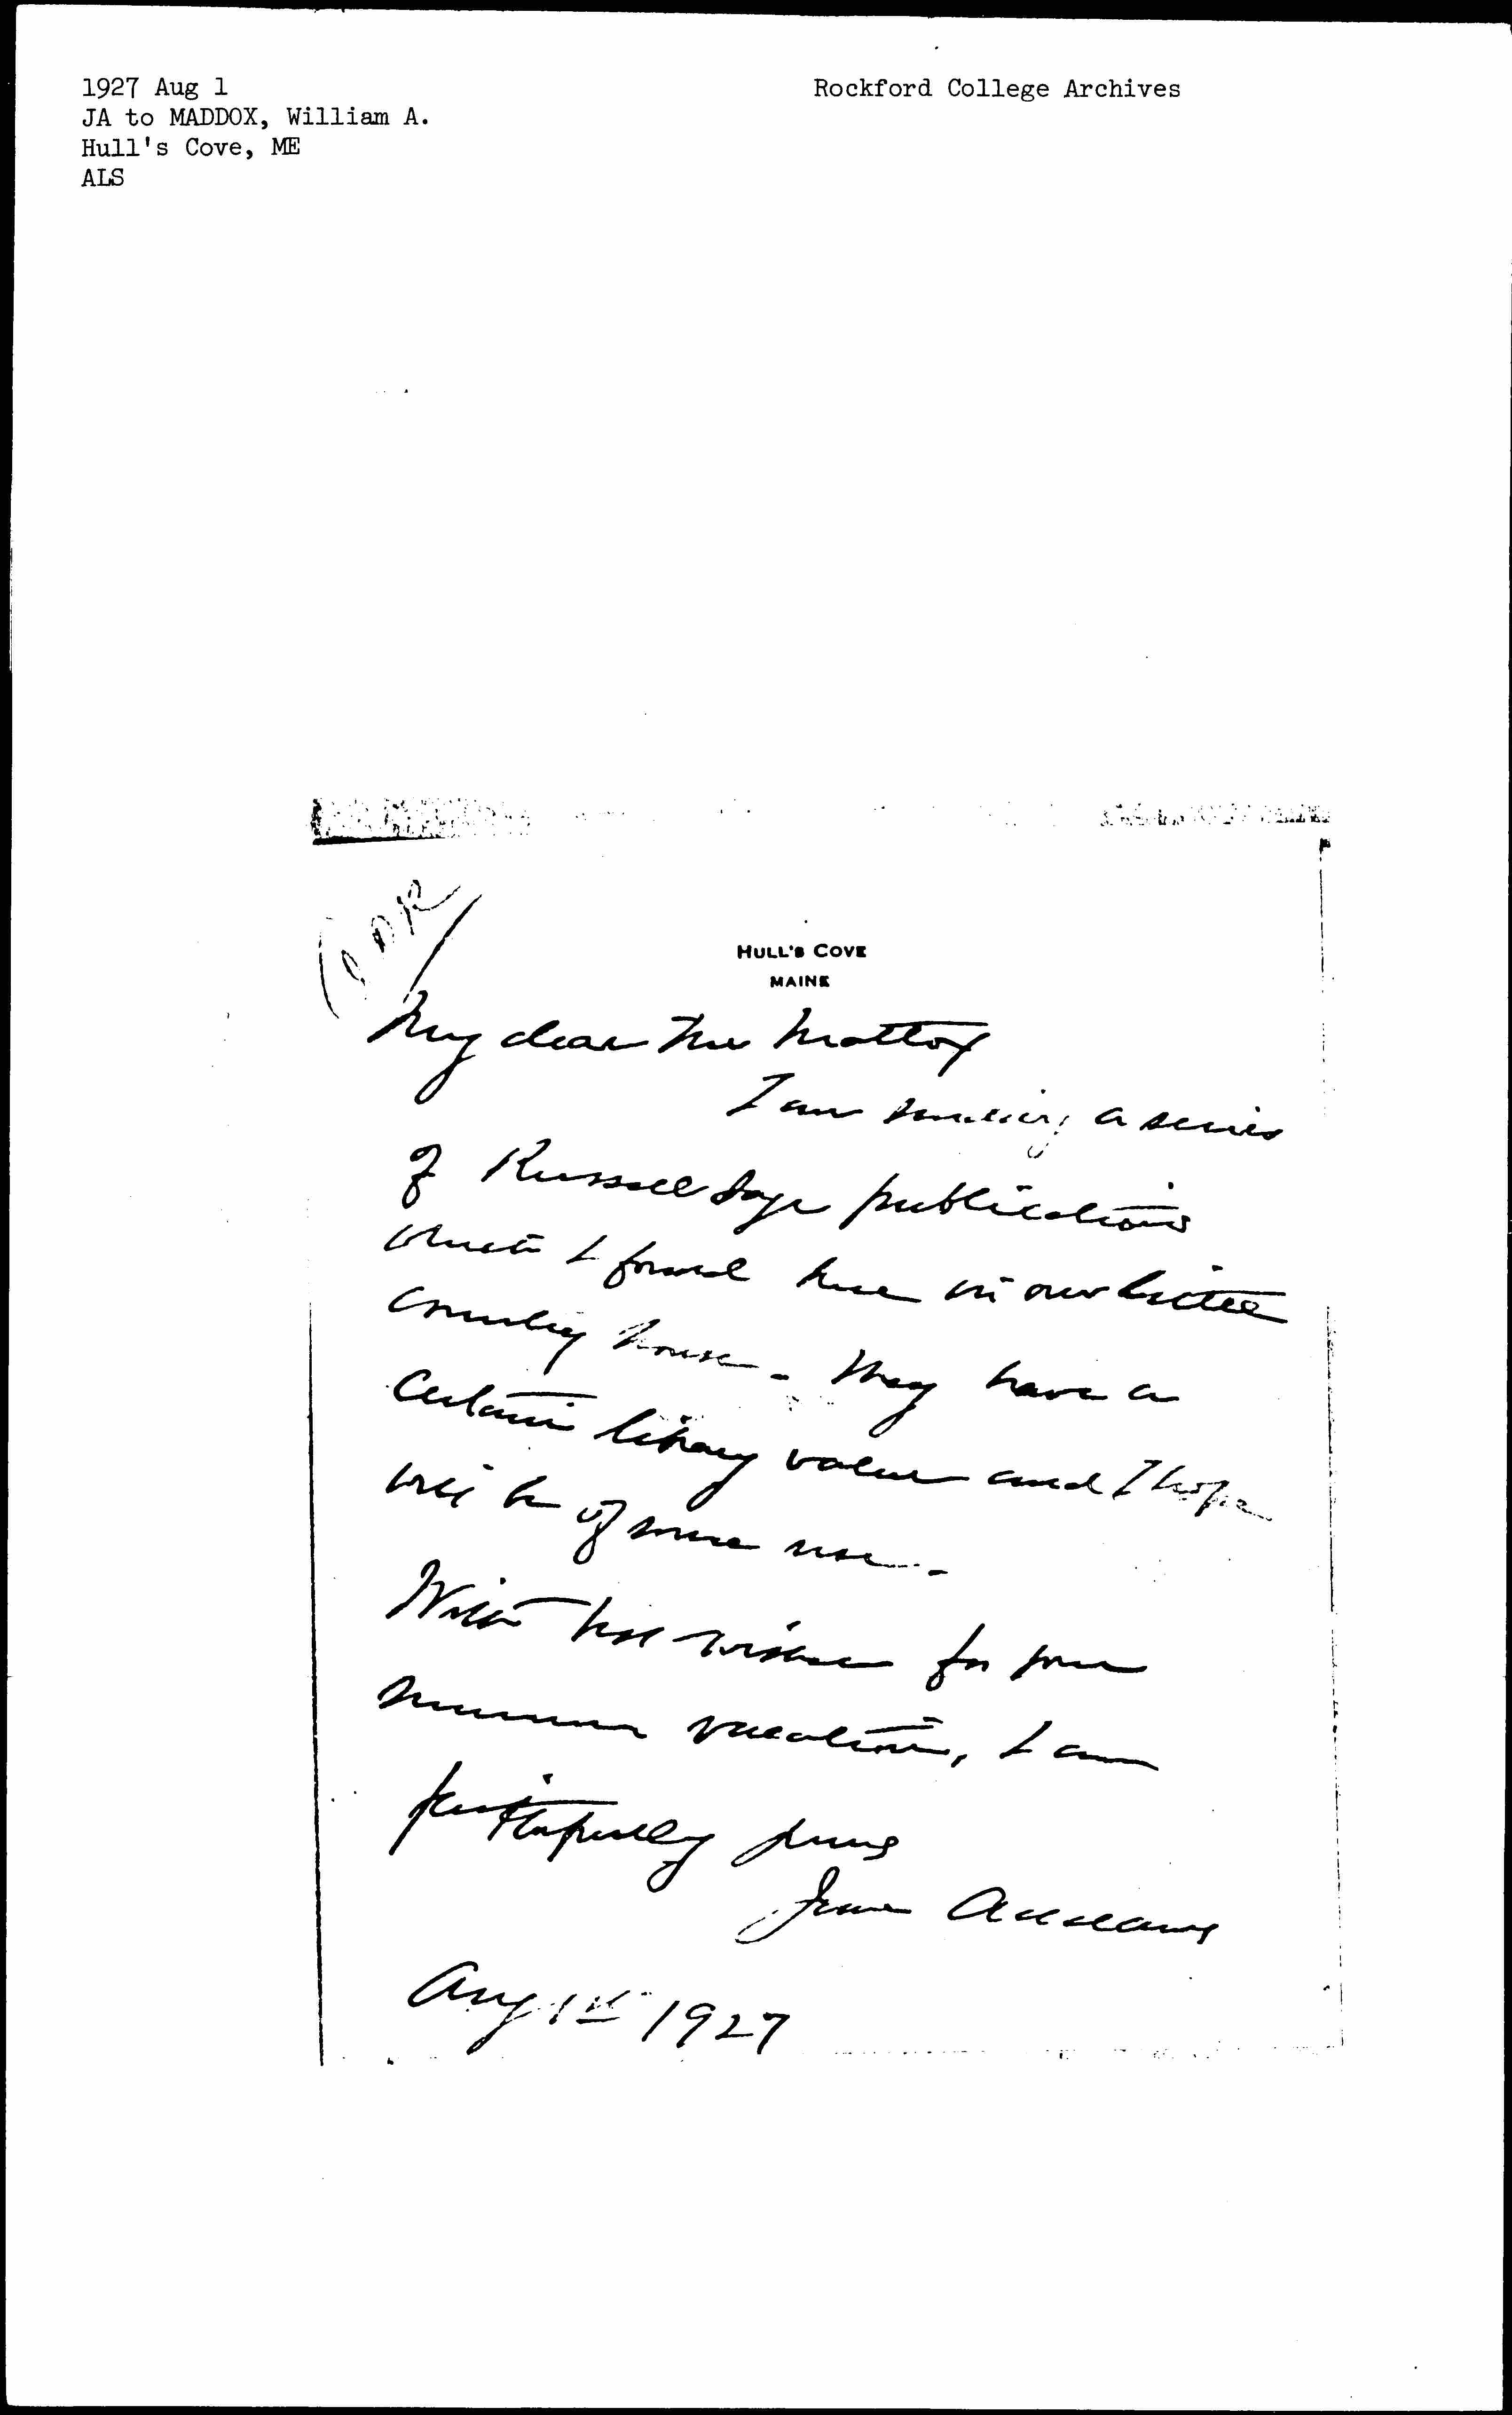 1927 Aug 1
JA to MADDOX, William A.
Hull's Cove, ME
ALS
Rockford College Archives
HULL'S COVE
MAINE
My dear Mr Mattox
I am sending a series
of Russell Sage publications
which I found here in our little
country house - they have a
certain library value and I hope
will be of some use -
With best wishes for your
summer vacation, I am
faithfully yours
Jane Addams
Aug 1st 1927